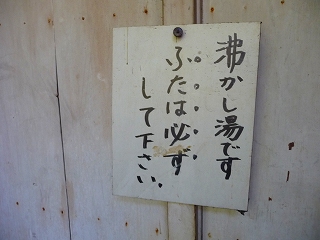 沸かし湯です
ふたは必ず
して下さい